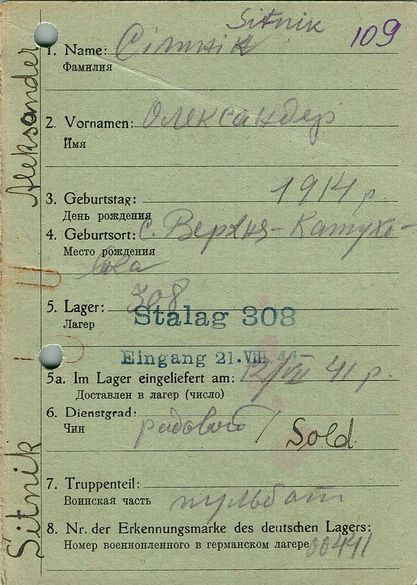 Sitnik
109
1. Name: Сітнік
Фамилия
2. Vornamen: Олександер
Имя
3. Geburtstag: 1914 р.
День рождения
4. Geburtsort: с. Верхня-
Место рождения
5. Lager: 308
Лагер
Stalag 308
Eingang 21. VIII. 41
5a. Im Lager eingeliefert am: 41 р.
Доставлен в лагер (число)
6. Dienstgrad: радовой / Sold.
Чин
7. Truppenteil: пульбат
Воинская часть
8. Nr. der Erkennungsmarke des deutschen Lagers:
Номер военнопленного в германском лагере 00441
Sitnik Aleksander